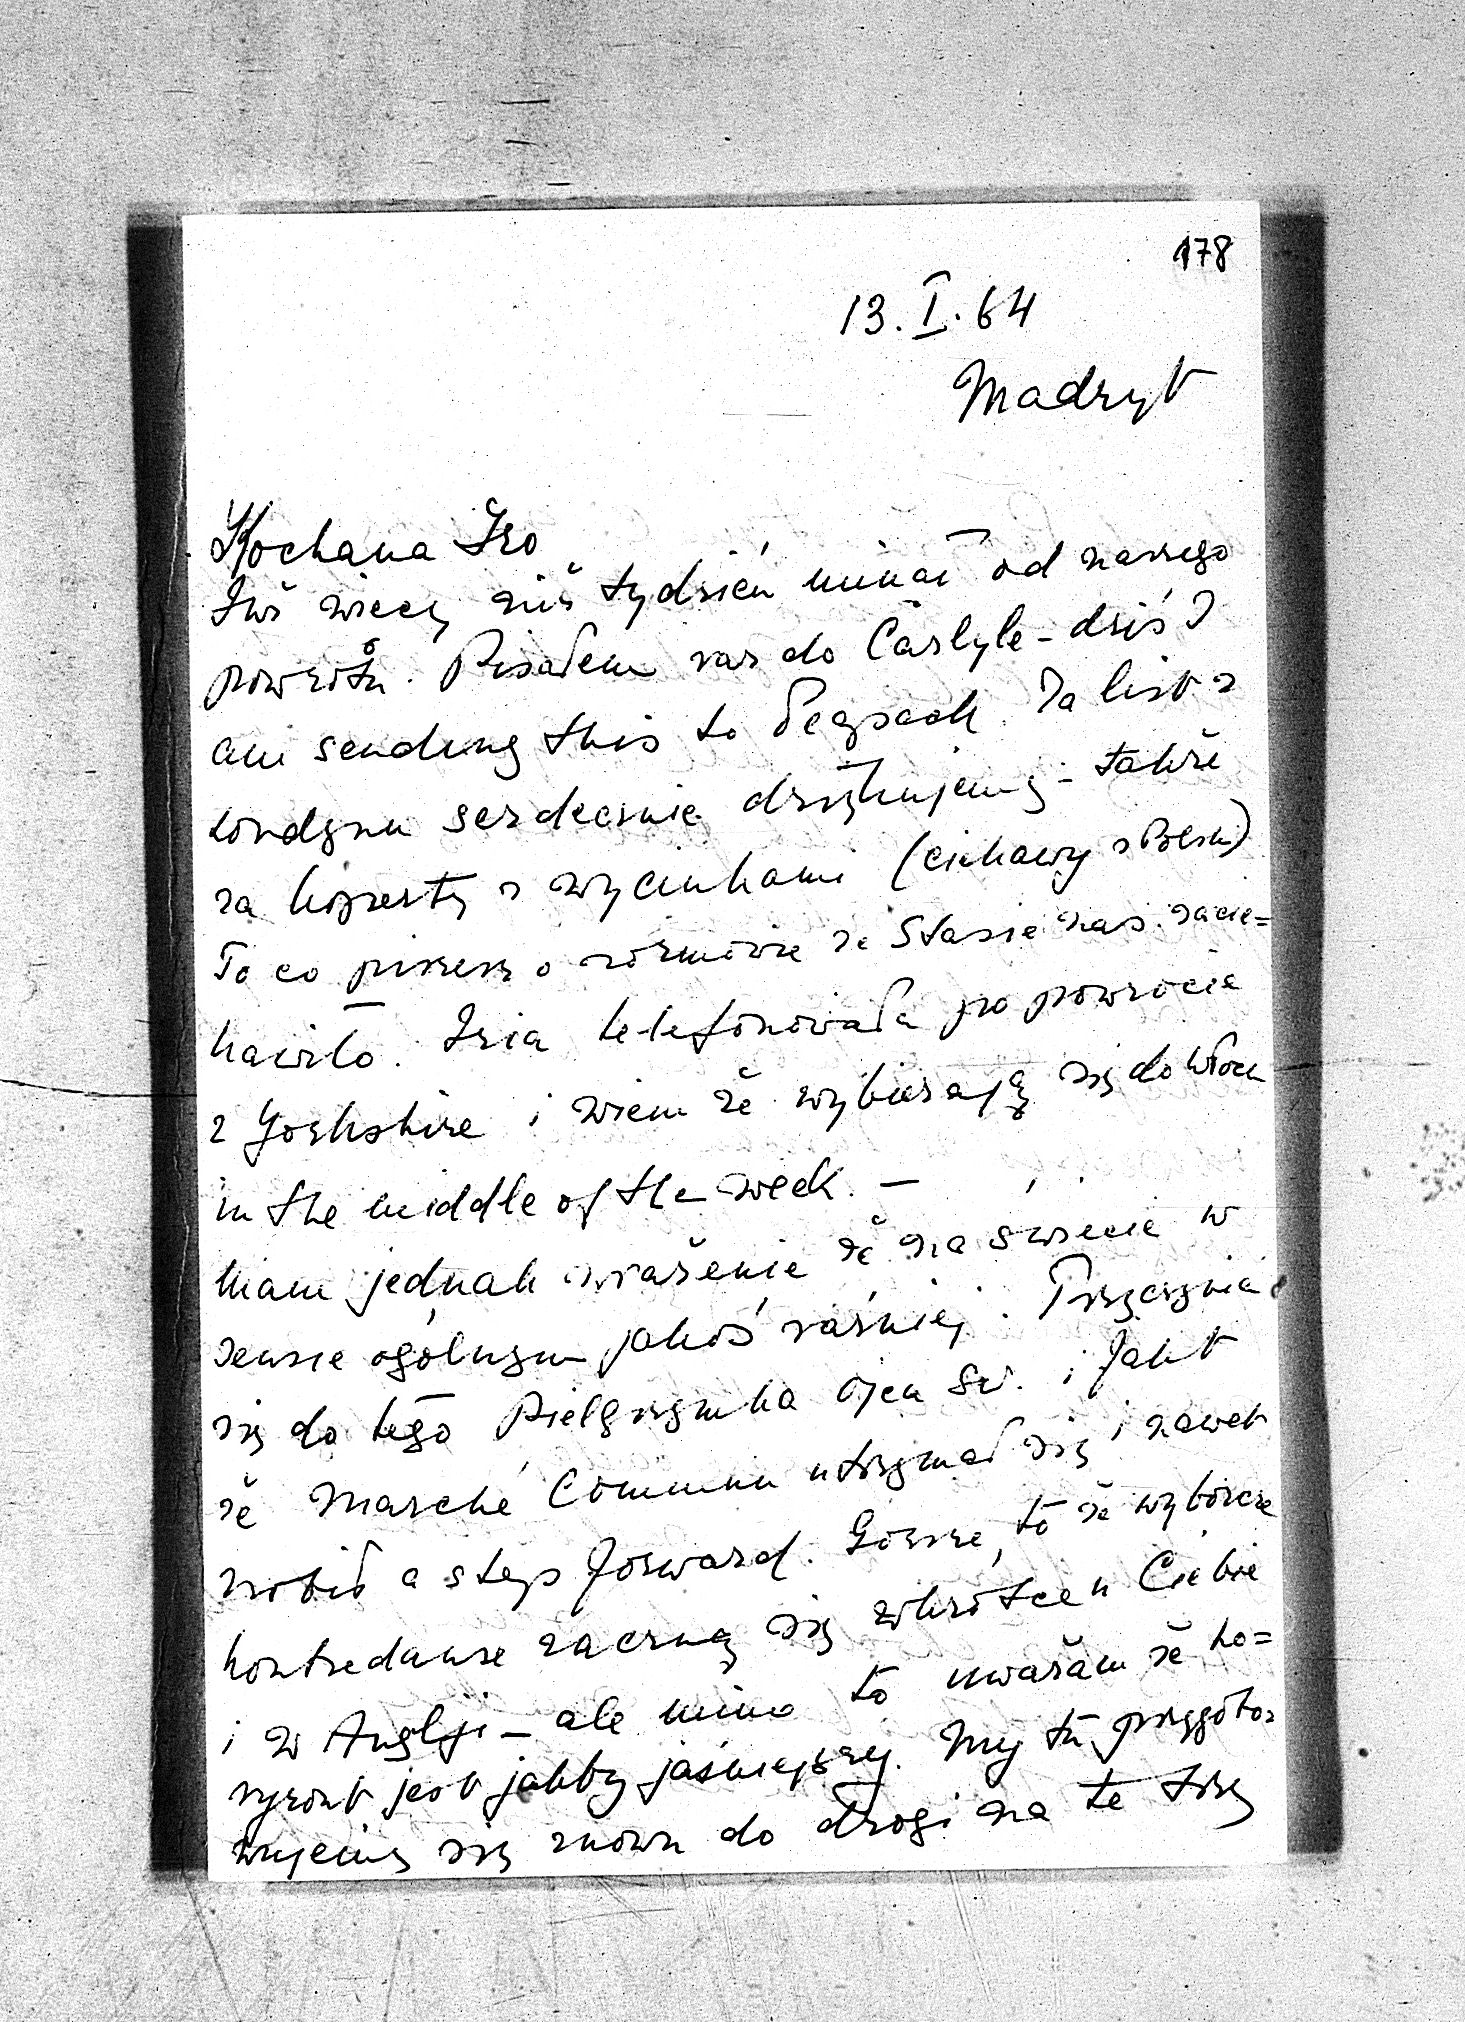 178
13.I.64
Madryt
Kochana Iro
Już więcej niż tydzień minął od naszego
powrotu. Pisałem raz do Carlyle - dziś I
am sending this to Peapack. Za list z
Londynu serdecznie dziękujemy - także
za koperty z wycinkami (ciekawy z Polski)
To co piszesz o rozmowie ze Stasie nas zacie=
kawiło. Isia telefonowała po powrocie
z Yorkshire i wiem że wybierają się do Włoch
in the middle of the week. —
Mam jednak wrażenie że na świecie w
sensie ogólnym jakoś raźniej. Przyczynia
się do tego Pielgrzymka Ojca Św. i fakt
że Marché Commun utrzymał się i nawet
zrobił a step forward. Gorsze, to że wyborcze
kontredanse zaczną się wkrótce u Ciebie
i w Anglji - ale mimo to uważam że ho=
ryzont jest jakby jaśniejszy. My tu przygoto=
wujemy się znowu do drogi na te trzy